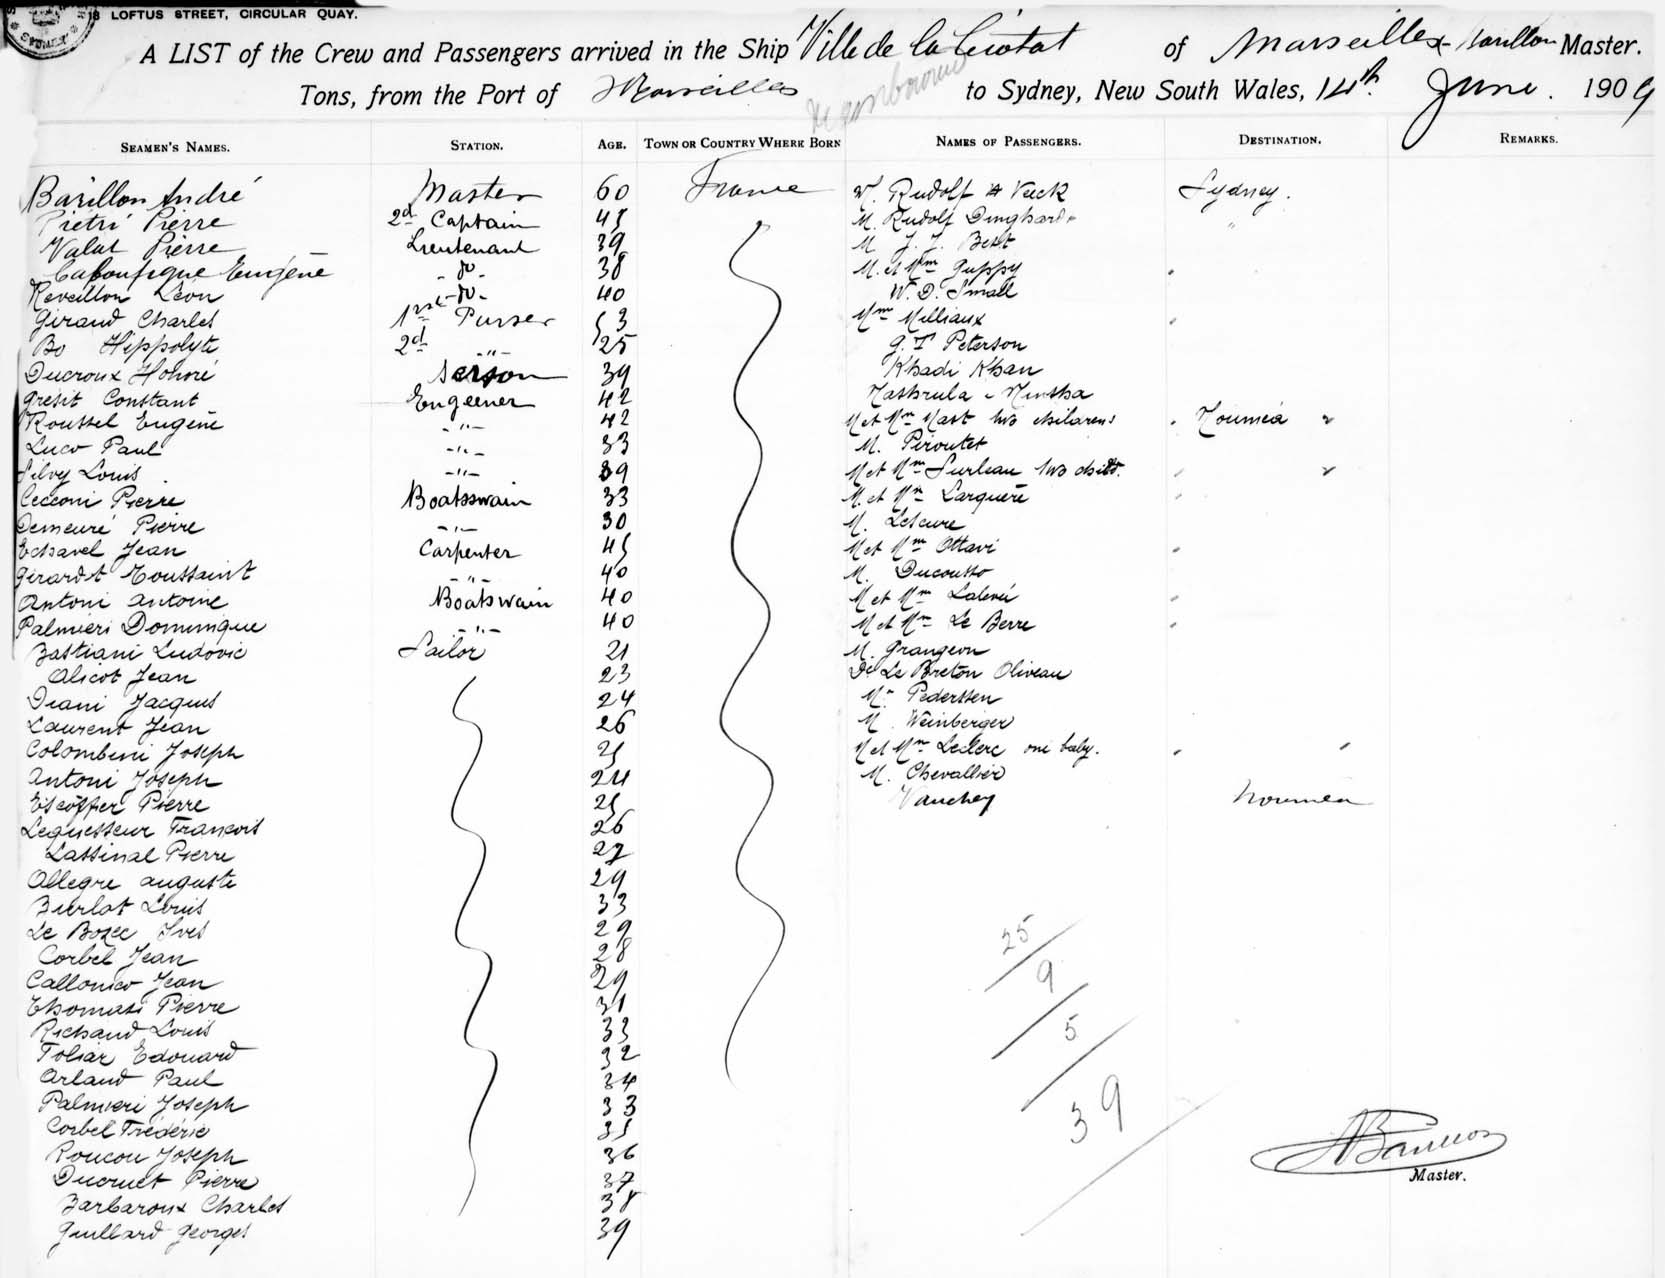 18 LOFTUS STREET, CIRCULAR QUAY.
SYDNEY
A LIST of the Crew and Passengers arrived in the Ship Ville de la Ciotat of Marseilles Barillon Master.
Tons, from the Port of Marseilles to Sydney, New South Wales, 14th June. 1909
SEAMEN'S NAMES. STATION. AGE. TOWN OR COUNTRY WHERE BORN NAMES OF PASSENGERS. DESTINATION. REMARKS.
Barillon André Master 60 France W. Rudolf A Veeck Sydney.
Pietri Pierre 2d Captain 45 M. Rudolf Dinghardt "
Valat Pierre Lieutenant 39 M J. J. Best
Eugène - do - 38 M. et Mm Guppy
Reveillon Léon - do - 40 W. D. Small
Giraud Charles 1rst Purser 53 Mm Milliaux
Bo Hippolyte 2d -"- 25 G. T Peterson
Ducroux Honoré 39 Khadi Khan
Gresit Constant Engeener 42
Roussel Eugène -"- 42 M et Mm Mast two childrens Nouméa
Luco Paul -"- 33 M. Piroutet
Silvy Louis -"- 39 M et Mm Surleau two child.
Cecconi Pierre Boatsswain 33 M. et Mm Larquère
Demeuré Pierre -"- 30 M.
Echavel Jean Carpenter 45 M et Mm Ottavi
Girardt Toussaint -"- 40 M. Ducousso
Antoni Antoine Boatswain 40 M et Mm
Palmieri Dominique -"- 40 M et Mm Le Berre
Bastiani Ludovic Sailor 21 M. Grangeon
Alicot Jean 23 De Le Breton Oliveau
Diani Jacques 24 Mr Pederssen
Laurent Jean 26 M. Weinberger
Colombini Joseph 25 M et Mm Leclerc one baby.
Antoni Joseph 24 M. Chevallier
Escoffier Pierre 25 Vauchey Nouméa
Lequesseur François 26
Lassinal Pierre 27
Allegre auguste 29
Burlot Louis 33
Le Bozec Yves 29
Corbel Jean 28
Jean 29
Thomasi Pierre 31
Richaud Louis 33
Edouard 32
Arlaud Paul 34
Palmieri Joseph 33
Corbel Frédéric 35
Roucou Joseph 36
Ducruet Pierre 37
Barbaroux Charles 38
Guillard Georges 39
25
9
5
39
ABarillon
Master.